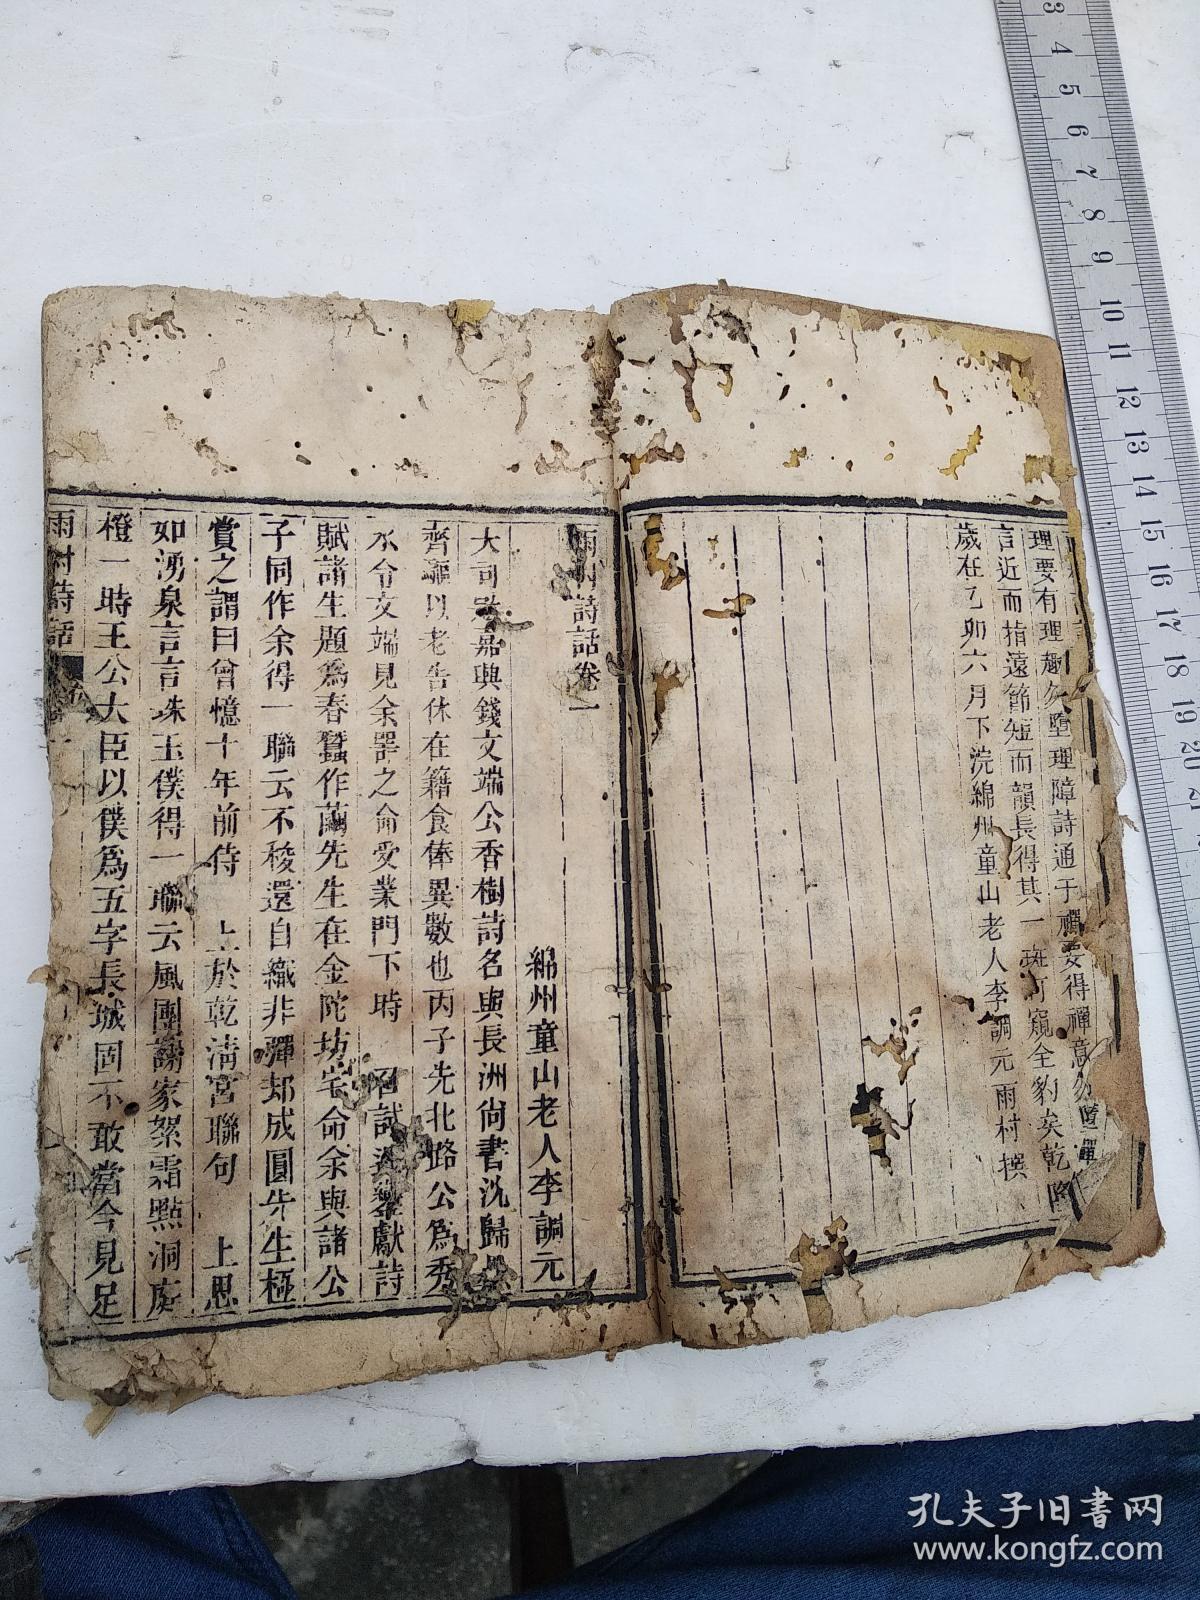 理要有理趣勿墮理障詩通于禪要得禪意勿墮禪
言近而指遠節短而韻長得其一斑可窺全豹矣乾隆
歲在乙卯六月下浣綿州童山老人李調元雨村撰
雨村詩話卷一
綿州童山老人李調元
大司 嘉興錢文端公香樹詩名與長洲尚書沈歸
齊 以老告休在籍食俸異數也丙子先北路公為秀
水令文端見余器之命受業門下時 召試 獻詩
賦諸生題為春蠶作繭先生在金陀坊宅命余與諸公
子同作余得一聯云不梭還自織非彈却成圓先生極
賞之謂曰曾憶十年前侍 上於乾清宮聯句 上思
如湧泉言言珠玉僕得一聯云風團謝家絮霜點洞庭
橙一時王公大臣以僕為五字長城固不敢當今見足
雨村詩話
3 4 5 6 7 8 9 10 11 12 13 14 15 16 17 18 19 20 21
孔夫子旧书网
www.kongfz.com